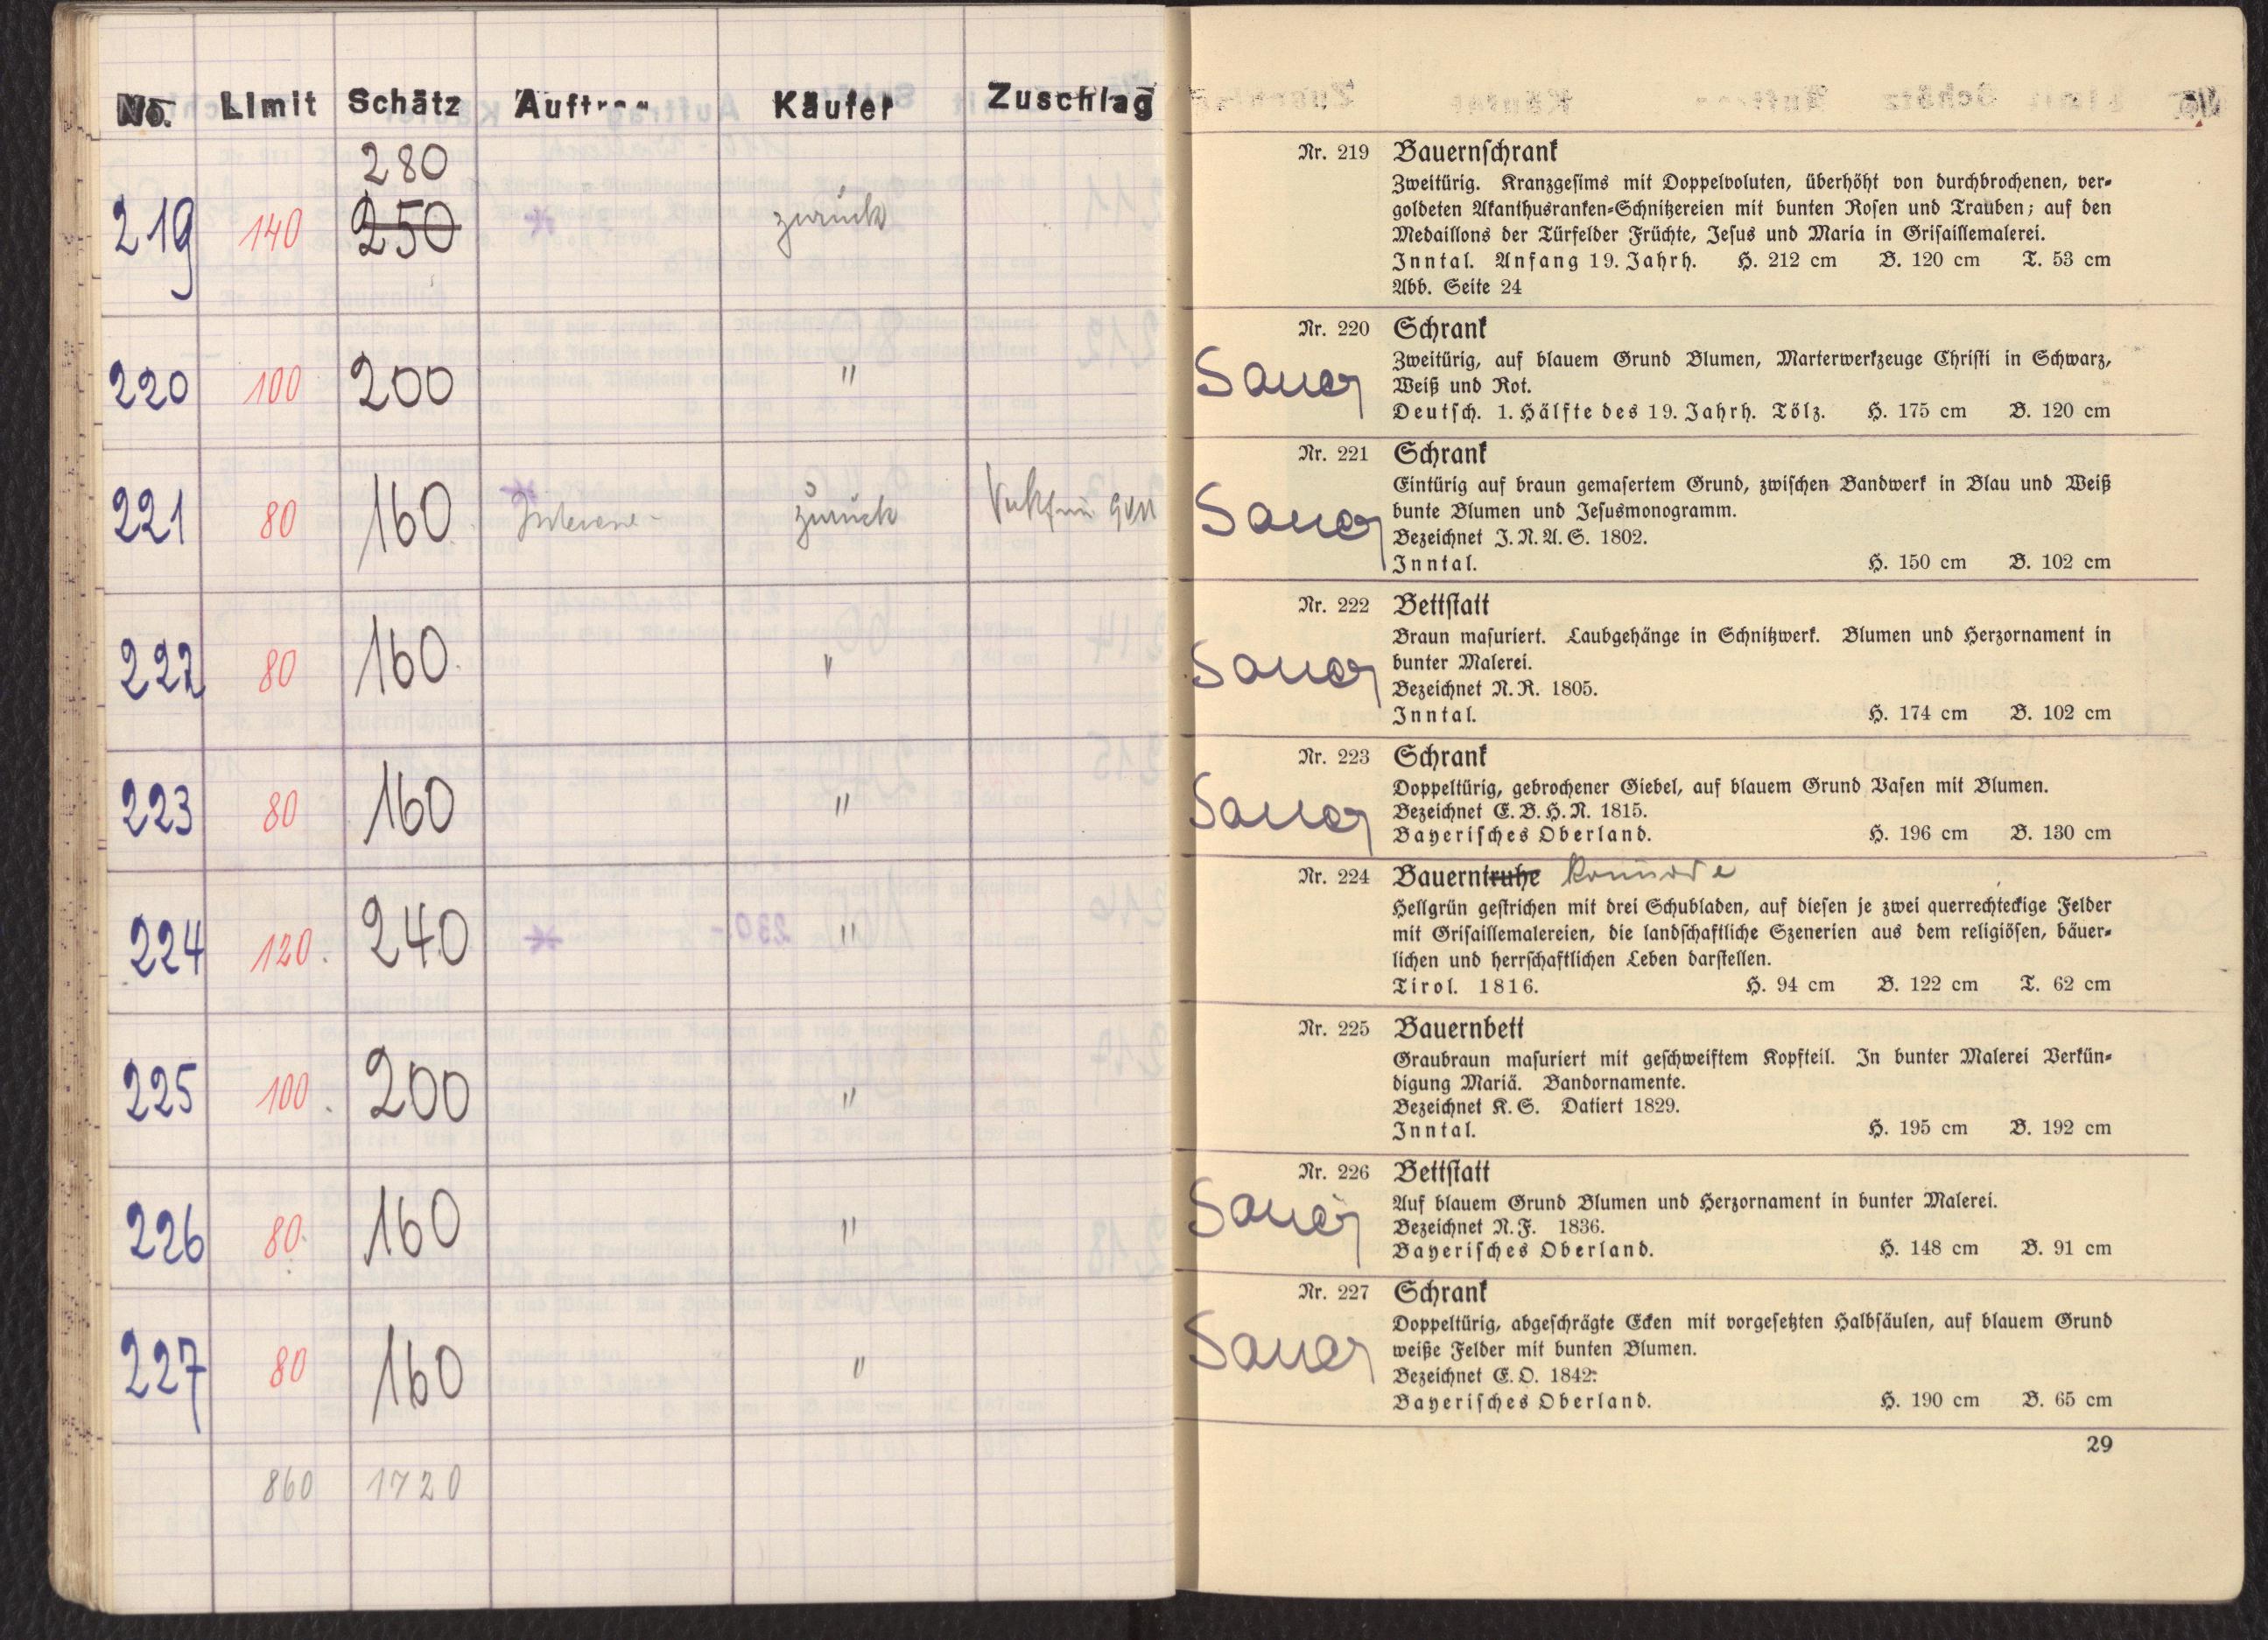 No. Limit Schätz Auftrag Käufer Zuschlag
280
219 140 250 * zurück
220 100 200 "
221 80 160. * Interesse zurück
222 80 160. "
223 80 160 "
224 120. 240 * 230.- "
225 100. 200 "
226 80. 160 "
227 80 160 "
860 1720
Nr. 219 Bauernschrank
Zweitürig. Kranzgesims mit Doppelvoluten, überhöht von durchbrochenen, ver-
goldeten Akanthusranken-Schnitzereien mit bunten Rosen und Trauben; auf den
Medaillons der Türfelder Früchte, Jesus und Maria in Grisaillemalerei.
Inntal. Anfang 19. Jahrh. H. 212 cm B. 120 cm T. 53 cm
Abb. Seite 24
Nr. 220 Schrank
Sauer
Zweitürig, auf blauem Grund Blumen, Marterwerkzeuge Christi in Schwarz,
Weiß und Rot.
Deutsch. 1. Hälfte des 19. Jahrh. Tölz. H. 175 cm B. 120 cm
Nr. 221 Schrank
Sauer
Eintürig auf braun gemasertem Grund, zwischen Bandwerk in Blau und Weiß
bunte Blumen und Jesusmonogramm.
Bezeichnet J. N. A. S. 1802.
Inntal. H. 150 cm B. 102 cm
Nr. 222 Bettstatt
Sauer
Braun masuriert. Laubgehänge in Schnitzwerk. Blumen und Herzornament in
bunter Malerei.
Bezeichnet N. R. 1805.
Inntal. H. 174 cm B. 102 cm
Nr. 223 Schrank
Sauer
Doppeltürig, gebrochener Giebel, auf blauem Grund Vasen mit Blumen.
Bezeichnet E. B. H. N. 1815.
Bayerisches Oberland. H. 196 cm B. 130 cm
Nr. 224 Bauerntruhe Komode
Hellgrün gestrichen mit drei Schubladen, auf diesen je zwei querrechteckige Felder
mit Grisaillemalereien, die landschaftliche Szenerien aus dem religiösen, bäuer-
lichen und herrschaftlichen Leben darstellen.
Tirol. 1816. H. 94 cm B. 122 cm T. 62 cm
Nr. 225 Bauernbett
Graubraun masuriert mit geschweiftem Kopfteil. In bunter Malerei Verkün-
digung Mariä. Bandornamente.
Bezeichnet K. S. Datiert 1829.
Inntal. H. 195 cm B. 192 cm
Nr. 226 Bettstatt
Sauer
Auf blauem Grund Blumen und Herzornament in bunter Malerei.
Bezeichnet N. F. 1836.
Bayerisches Oberland. H. 148 cm B. 91 cm
Nr. 227 Schrank
Sauer
Doppeltürig, abgeschrägte Ecken mit vorgesetzten Halbsäulen, auf blauem Grund
weiße Felder mit bunten Blumen.
Bezeichnet E. O. 1842.
Bayerisches Oberland. H. 190 cm B. 65 cm
29